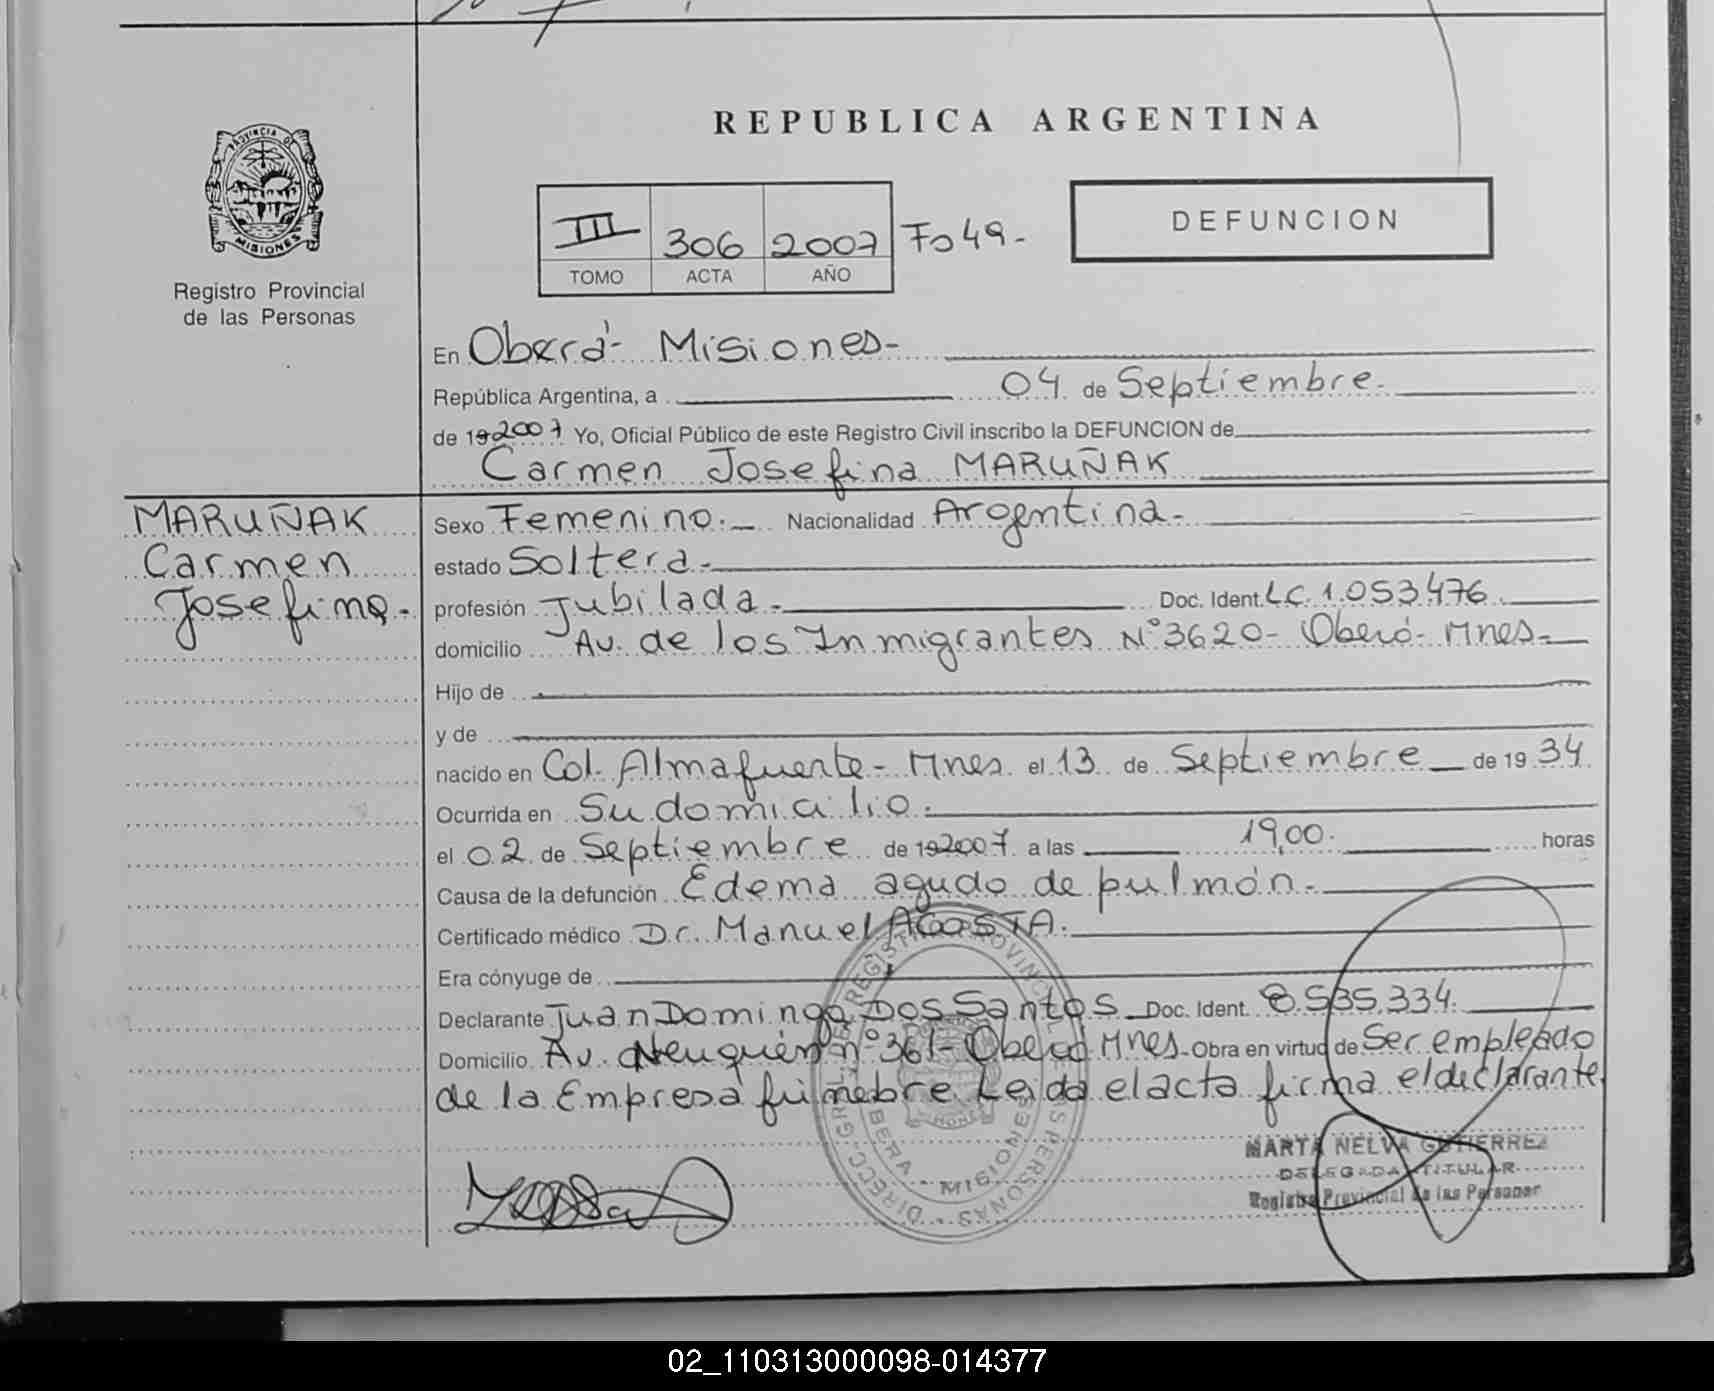 REPUBLICA ARGENTINA
PROVINCIA DE
MISIONES
Registro Provincial
de las Personas
III 306 2007 Fo 49-
TOMO ACTA AÑO
DEFUNCION
En Oberá- Misiones-
República Argentina, a 04 de Septiembre.
de 19 2007 Yo, Oficial Público de este Registro Civil inscribo la DEFUNCION de
Carmen Josefina MARUÑAK
MARUÑAK
Carmen
Josefina.-
Sexo Femenino.- Nacionalidad Argentina.-
estado Soltera.-
profesión Jubilada.- Doc. Ident. L.C. 1.053.476.
domicilio Av. de los Inmigrantes N° 3620- Oberá- Mnes-
Hijo de
y de
nacido en Col. Almafuerte- Mnes. el 13 de Septiembre de 19 34
Ocurrida en Su domicilio.
el 02 de Septiembre de 19 2007 a las 19,00. horas
Causa de la defunción Edema agudo de pulmón.-
Certificado médico Dr. Manuel ACOSTA.
Era cónyuge de
Declarante Juan Domingo Dos Santos Doc. Ident. 8.535.334.
Domicilio Av. Neuquén n° 361- Oberá Mnes. Obra en virtud de Ser empleado
de la Empresa fúnebre Leida el acta firma el declarante.
MARTA NELVA GUTIERREZ
DELEGADA TITULAR
Registro Provincial de las Personas
02_110313000098-014377